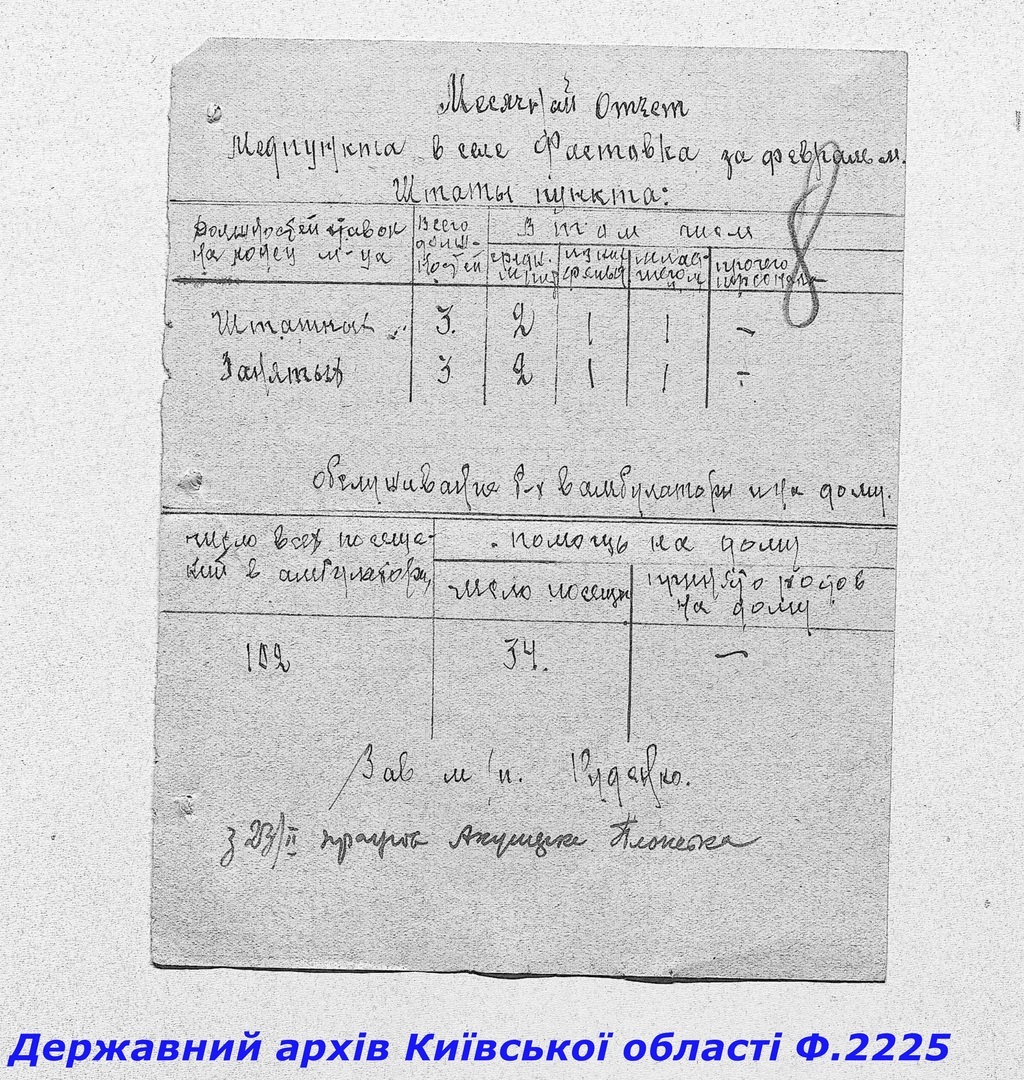 Месячный Отчет
Медпункта в селе Фастовка за февраль м.
8
Штаты пункта:
Должностей ставок на конец м-ца
Всего долж-ностей
В том числе
средн.
из них
млад-
прочего персонала
Штатных 3. 2 1 1 –
Занятых 3 2 1 1 –
обслуживание б-х в амбулатории и на дому.
число всех посеще-ний в амбулатории
помощь на дому
число посещ.
принято родов на дому
102 34. –
Зав м/п. Руденко.
з 23/II працює Акушерка
Державний архів Київської області Ф.2225